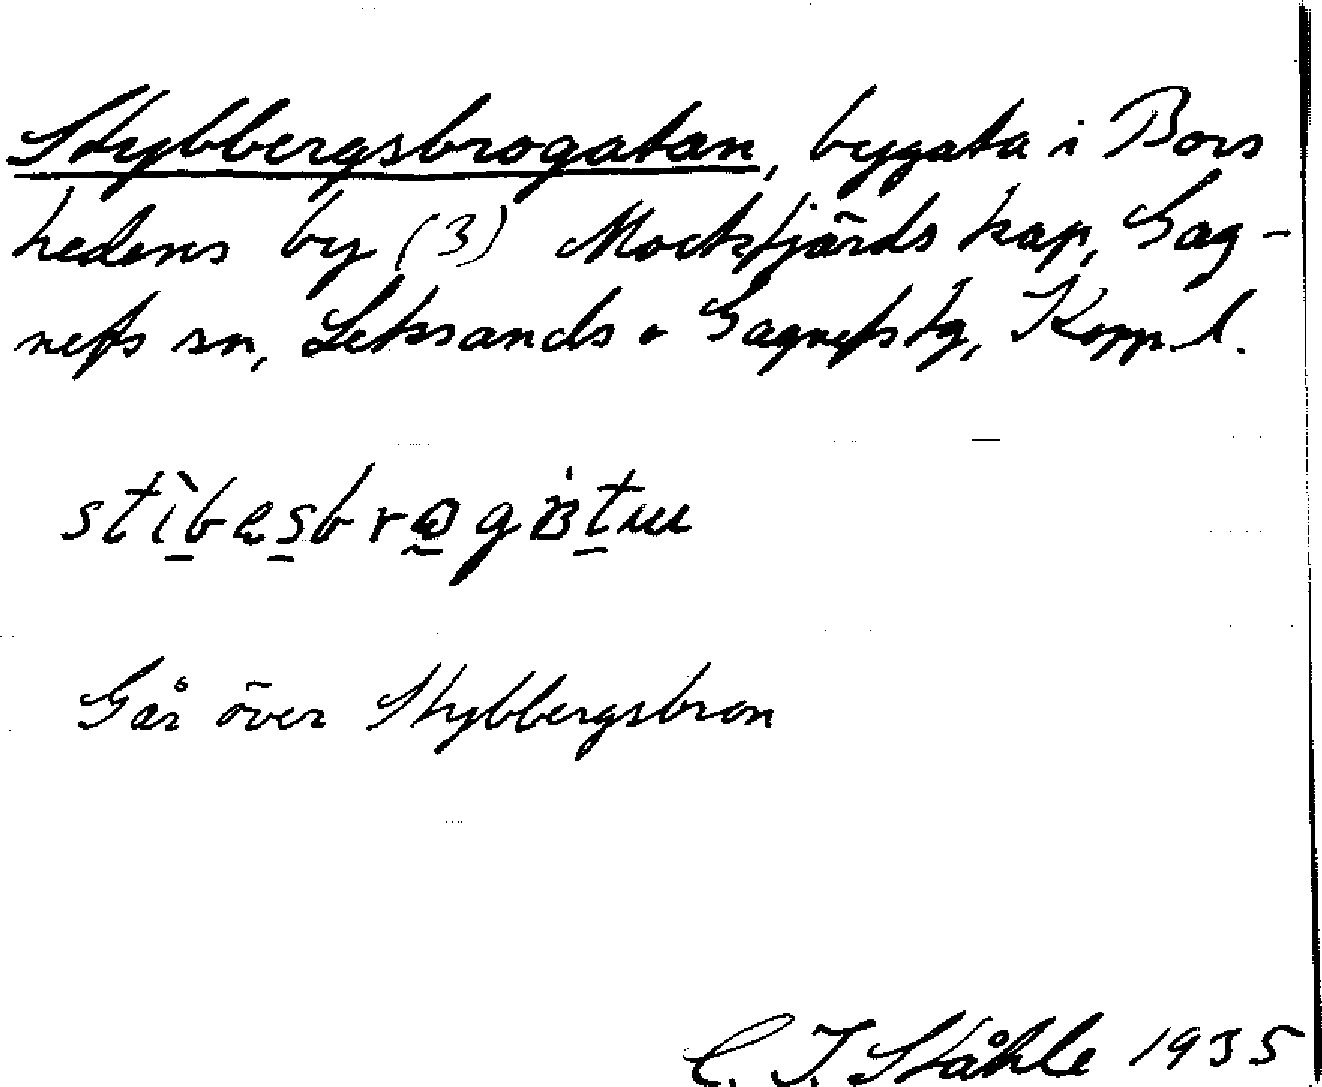 Stybbergsbrogatan, bygata i Bors
hedens by (3) Mockfjärds kap, Gag-
nefs sn, Leksands o Gagnefs tg, Kopp. l.
Går över Stybbergsbron
C. I. Ståhle 1935